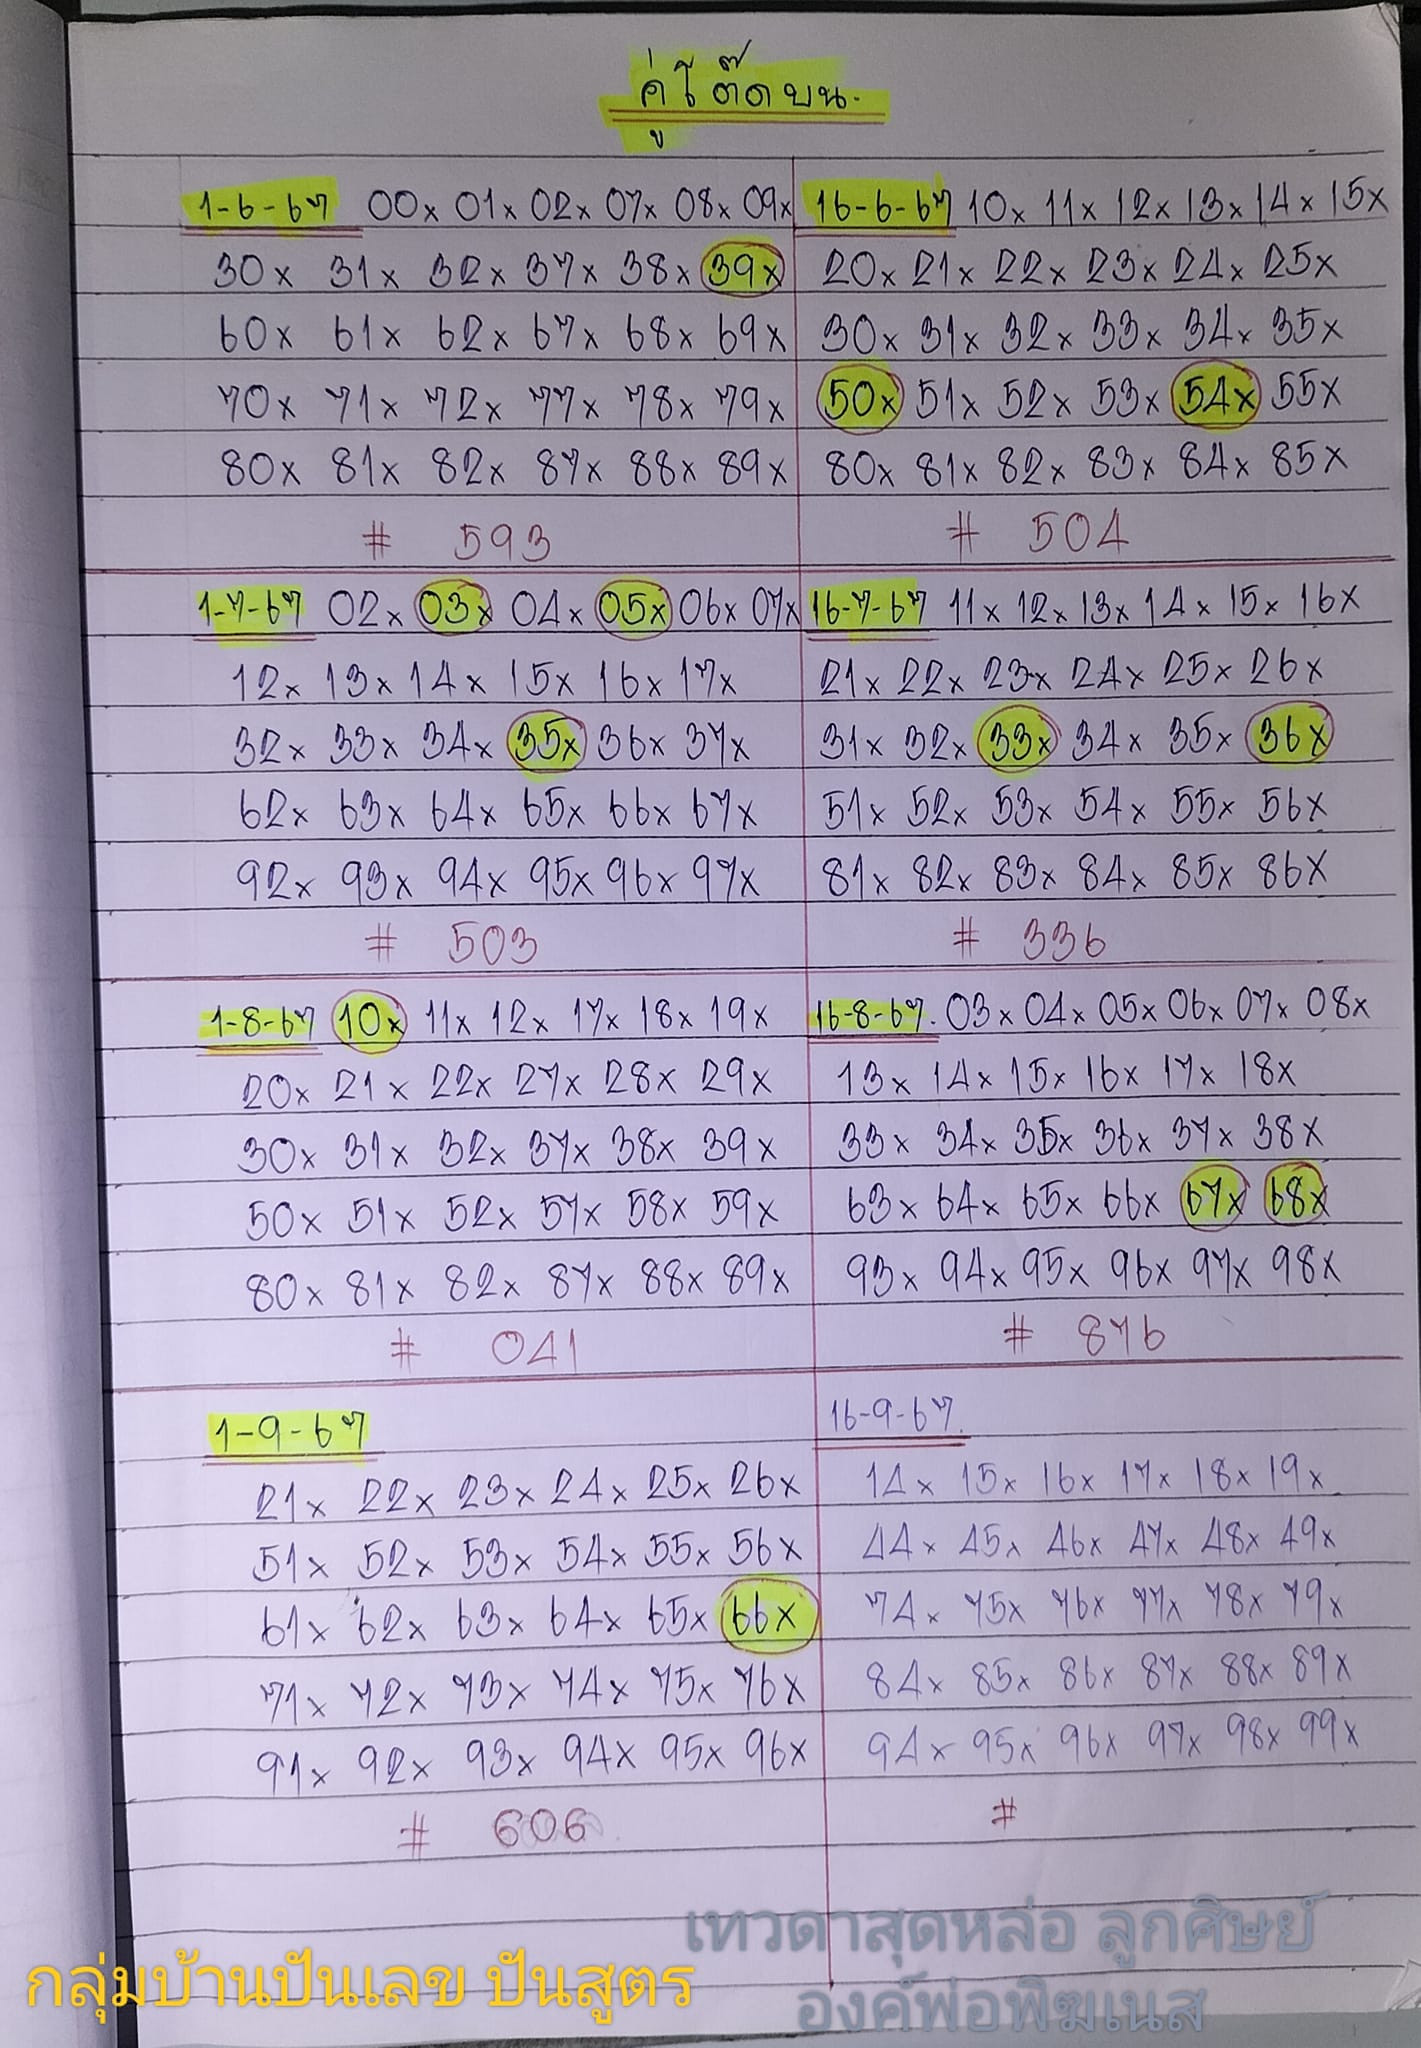 คู่โต๊ดบน.
1-6-67 00x 01x 02x 07x 08x 09x
30x 31x 32x 37x 38x 39x
60x 61x 62x 67x 68x 69x
70x 71x 72x 77x 78x 79x
80x 81x 82x 87x 88x 89x
# 593
16-6-67 10x 11x 12x 13x 14x 15x
20x 21x 22x 23x 24x 25x
30x 31x 32x 33x 34x 35x
50x 51x 52x 53x 54x 55x
80x 81x 82x 83x 84x 85x
# 504
1-7-67 02x 03x 04x 05x 06x 07x
12x 13x 14x 15x 16x 17x
32x 33x 34x 35x 36x 37x
62x 63x 64x 65x 66x 67x
92x 93x 94x 95x 96x 97x
# 503
16-7-67 11x 12x 13x 14x 15x 16x
21x 22x 23x 24x 25x 26x
31x 32x 33x 34x 35x 36x
51x 52x 53x 54x 55x 56x
81x 82x 83x 84x 85x 86x
# 336
1-8-67 10x 11x 12x 17x 18x 19x
20x 21x 22x 27x 28x 29x
30x 31x 32x 37x 38x 39x
50x 51x 52x 57x 58x 59x
80x 81x 82x 87x 88x 89x
# 041
16-8-67. 03x 04x 05x 06x 07x 08x
13x 14x 15x 16x 17x 18x
33x 34x 35x 36x 37x 38x
63x 64x 65x 66x 67x 68x
93x 94x 95x 96x 97x 98x
# 876
1-9-67
21x 22x 23x 24x 25x 26x
51x 52x 53x 54x 55x 56x
61x 62x 63x 64x 65x 66x
71x 72x 73x 74x 75x 76x
91x 92x 93x 94x 95x 96x
# 606
16-9-67.
14x 15x 16x 17x 18x 19x
44x 45x 46x 47x 48x 49x
74x 75x 76x 77x 78x 79x
84x 85x 86x 87x 88x 89x
94x 95x 96x 97x 98x 99x
#
เทวดาสุดหล่อ ลูกศิษย์
องค์พ่อพิฆเนส
กลุ่มบ้านปันเลข ปันสูตร